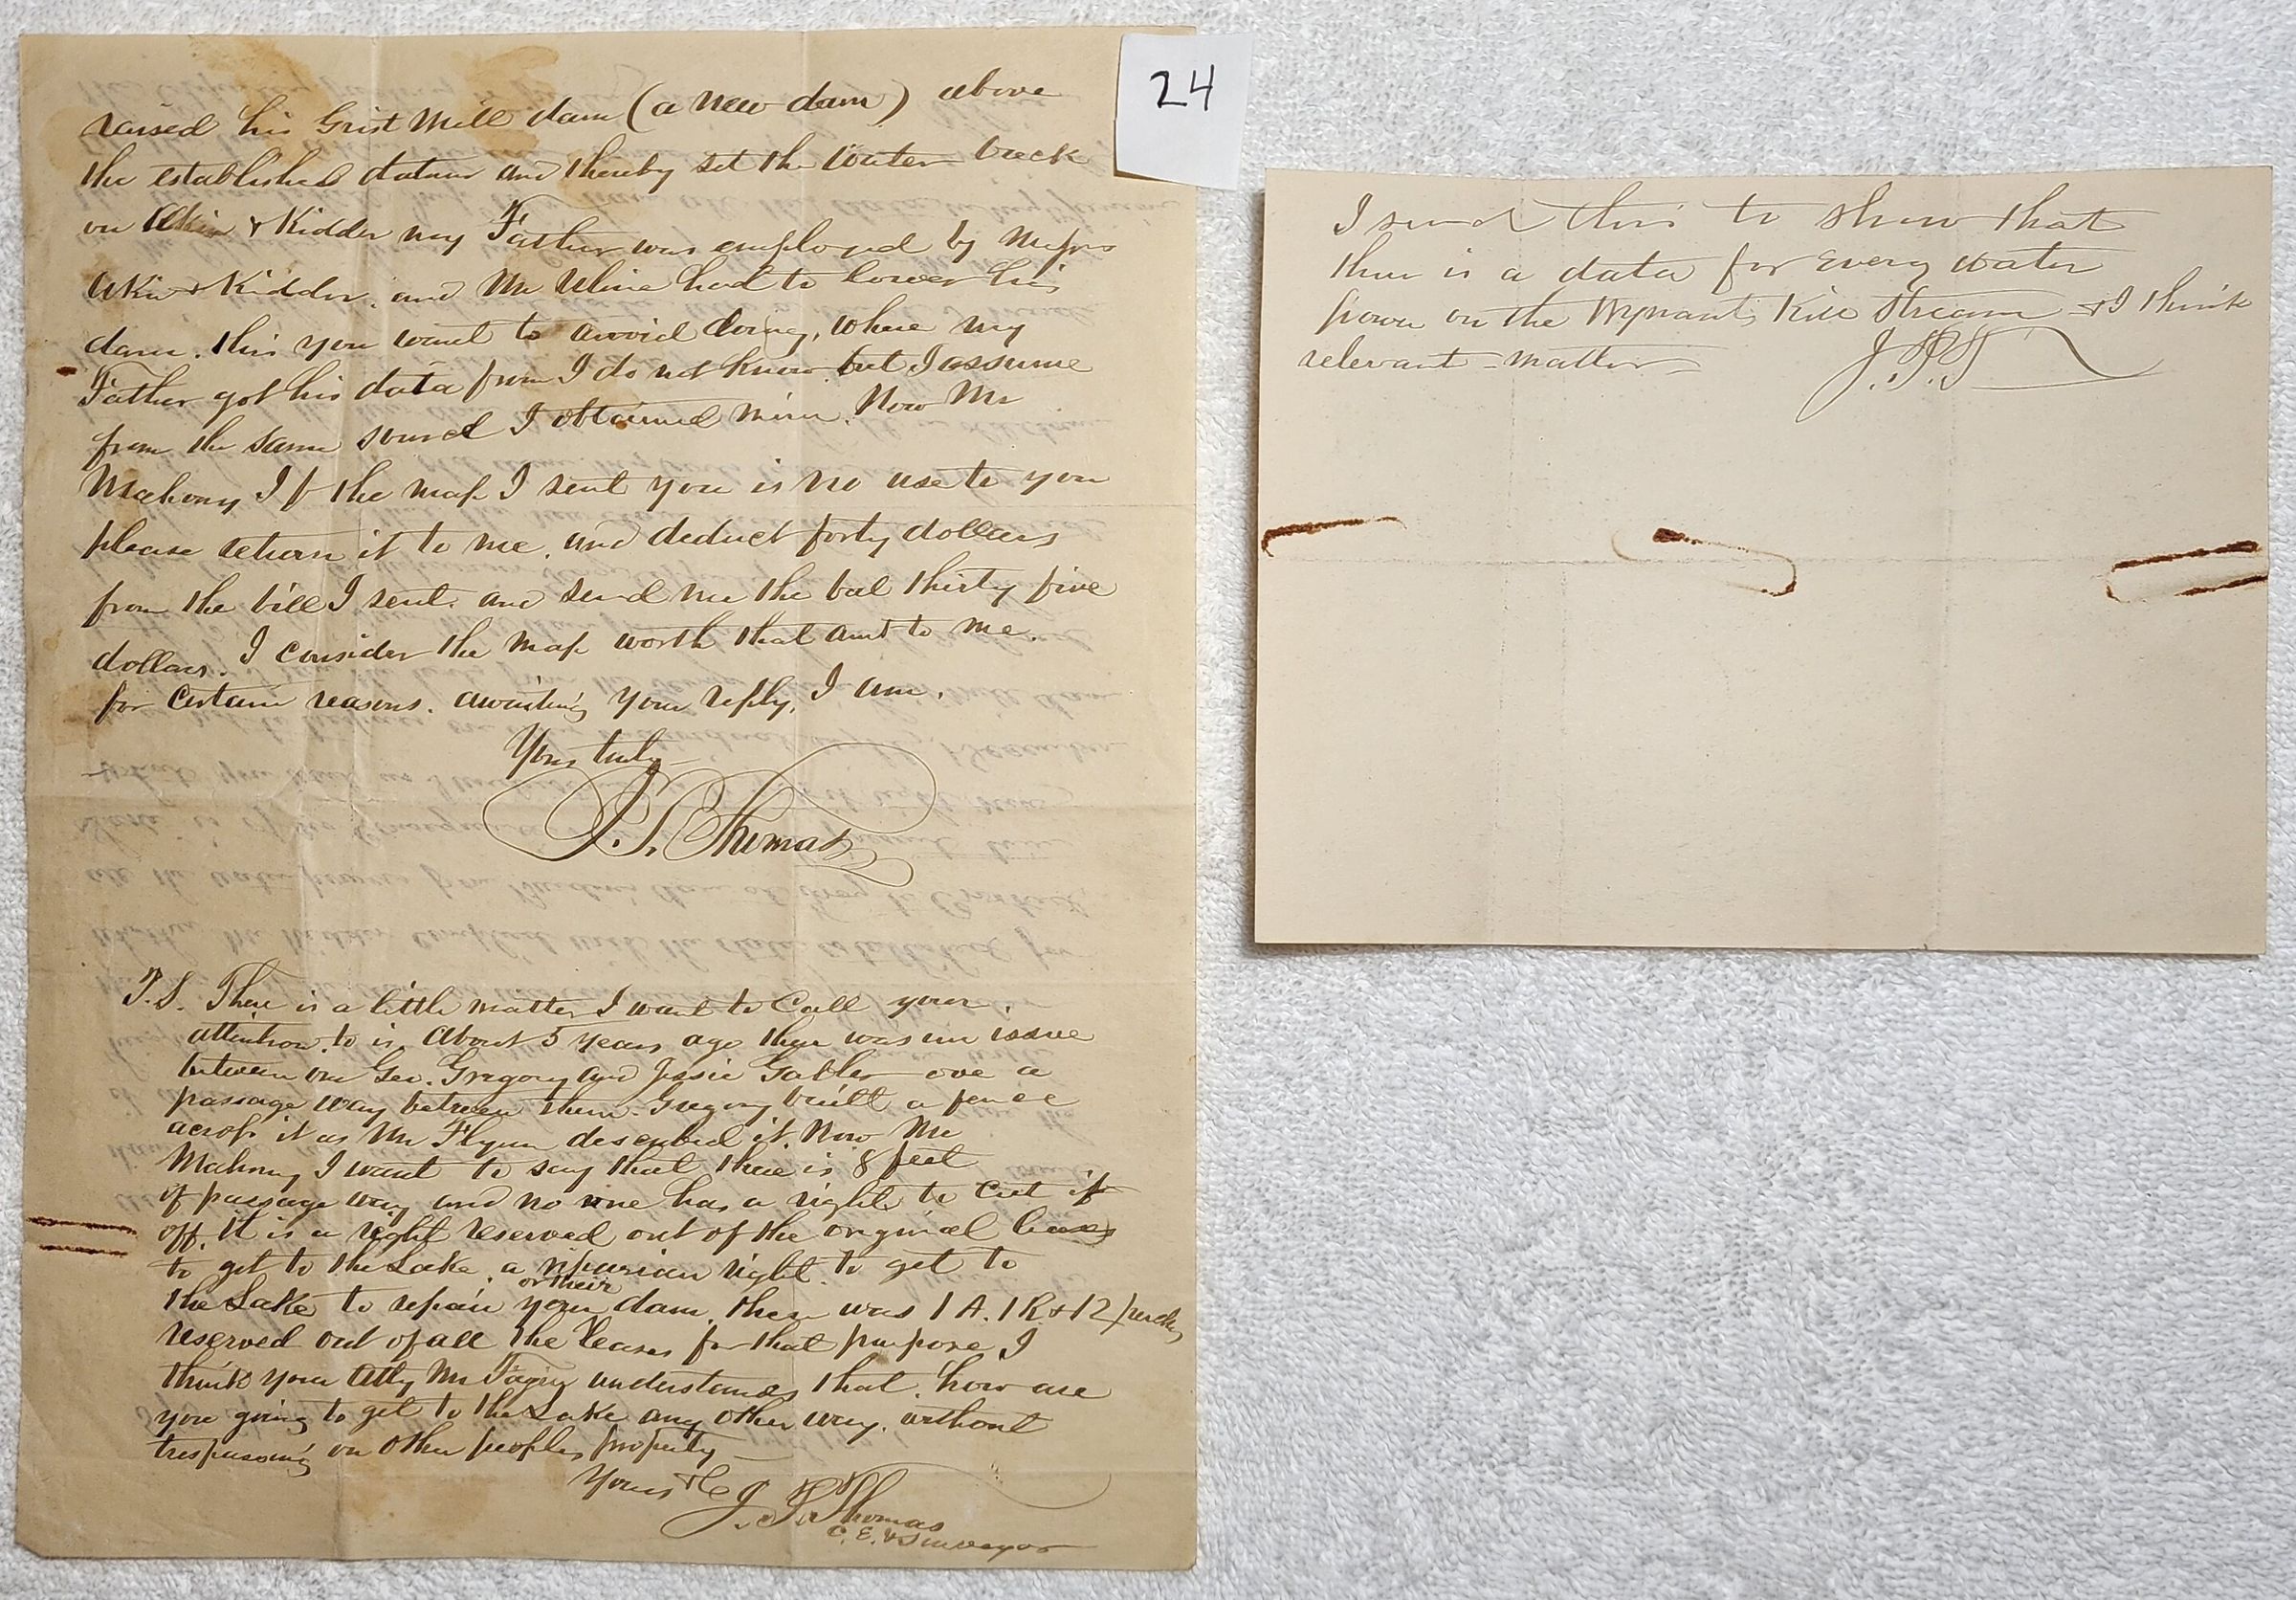 raised his Grist Mill dam (a new dam) above
the established datum and thereby set the Water back
on Akin & Kidder my Father was employed by Messrs
Akin & Kidder. and Mr Uline had to lower his
dam. this you want to avoid doing, where my
Father got his data from I do not know. but I assume
from the same source I obtained mine. Now Mr
Mahony If the map I sent you is no use to you
please return it to me. and deduct forty dollars
from the bill I sent. and send me the bal thirty five
dollars. I consider the map worth that amt to me.
for certain reasons. awaiting your reply, I am.
Yours truly
J. P. Thomas
P.S. There is a little matter I want to Call your
attention to is. About 5 years ago there was an issue
between one Geo. Gregory and Jessie Gabler ove a
passage way between them. Gregory built a fence
across it as Mr Flynn described it. Now Mr
Mahony I want to say that there is 8 feet
of passage way and no one has a right to Cut it
off. it is a right reserved out of the original leases
to get to the Lake. a riparian right. to get to
or their
the Lake to repair your dam. there was 1 A. 1 R & 12 perches
reserved out of all the leases for that purpose I
think your Atty Mr understands that. how are
you going to get to the Lake any other way. without
trespassing on other peoples property
Yours &C J. P. Thomas
C. E. & Surveyor
24
I send this to show that
there is a data for every water
power on the Wynants Kill Stream & I think
relevant matter
J. P. T